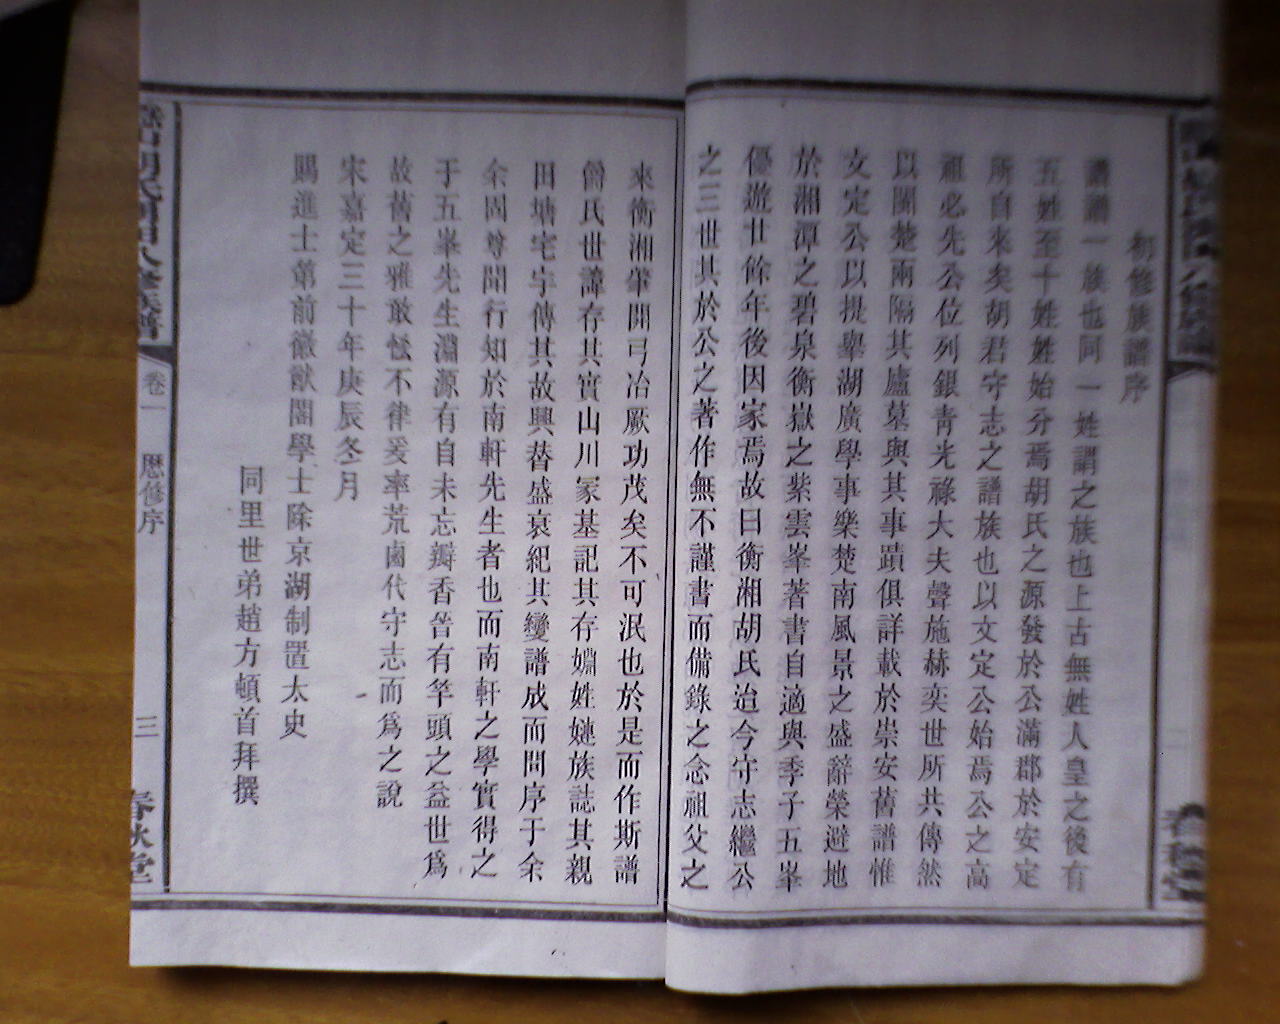 初修族譜序
譜譜一族也同一姓謂之族也上古無姓人皇之後有
五姓至十姓姓始分焉胡氏之源發於公滿郡於安定
所自來矣胡君守志之譜族也以文定公始焉公之高
祖必先公位列銀青光祿大夫聲施赫奕世所共傳然
以閩楚兩隔其廬墓與其事蹟俱詳載於崇安舊譜惟
文定公以提舉湖廣學事樂楚南風景之盛辭榮避地
於湘潭之碧泉衡嶽之紫雲峯著書自適與季子五峯
優遊廿餘年後因家焉故曰衡湘胡氏迨今守志繼公
之三世其於公之著作無不謹書而備錄之念祖父之
來衡湘肇開弓冶厥功茂矣不可泯也於是而作斯譜
爵氏世諱存其實山川冢墓記其存婣姓嫤族誌其親
田塘宅宇傳其故興替盛衰紀其變譜成而問序于余
余固尊聞行知於南軒先生者也而南軒之學實得之
于五峯先生淵源有自未忘瓣香昝有竿頭之益世爲
故舊之雅敢恡不律爰率荒鹵代守志而爲之說
宋嘉定三十年庚辰冬月
賜進士第前徽猷閣學士除京湖制置太史
同里世弟趙方頓首拜撰
卷一
歷修序
三
春秋堂